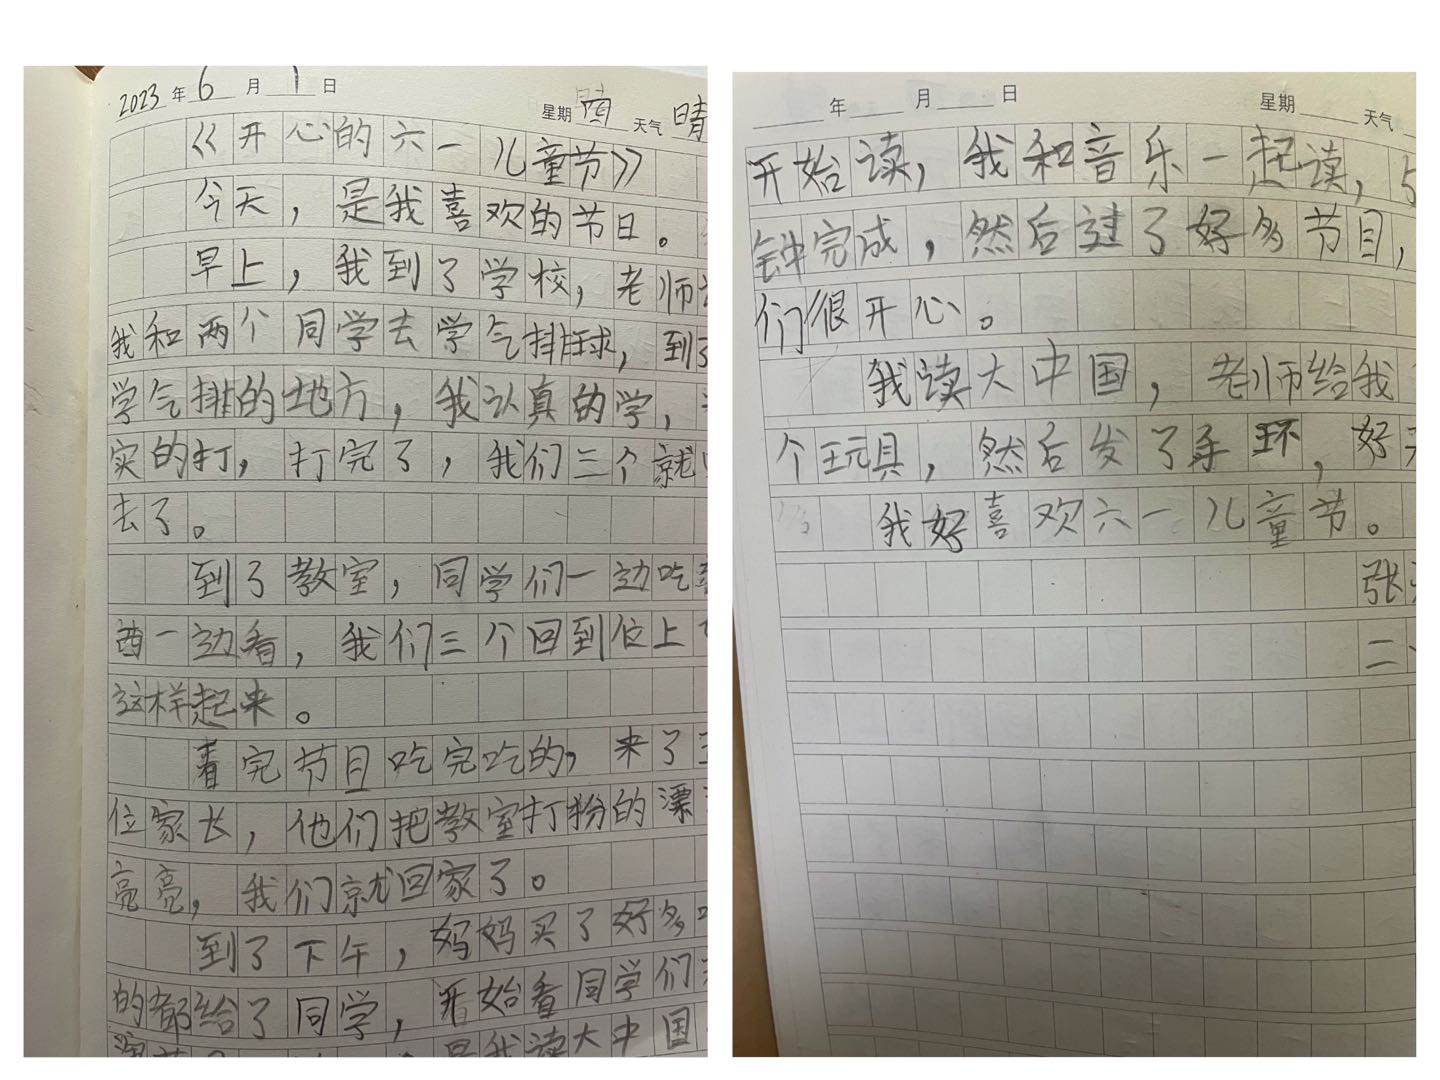 2023年6月1日 星期 天气晴
《开心的六一儿童节》
今天，是我喜欢的节日。
早上，我到了学校，老师
我和两个同学去学气排球，到了
学气排的地方，我认真的学，
实的打，打完了，我们三个就
去了。
到了教室，同学们一边吃
西一边看，我们三个回到位上
这样起来。
看完节目吃完吃的，来了三
位家长，他们把教室打粉的漂
亮亮，我们就回家了。
到了下午，妈妈买了好多
的都给了同学，开始看同学们
是我读大中国
年 月 日 星期 天气
开始读，我和音乐一起读，5
钟完成，然后过了好多节目，
们很开心。
我读大中国，老师给我
个玩具，然后发了手环，好
我好喜欢六一儿童节。
张
二